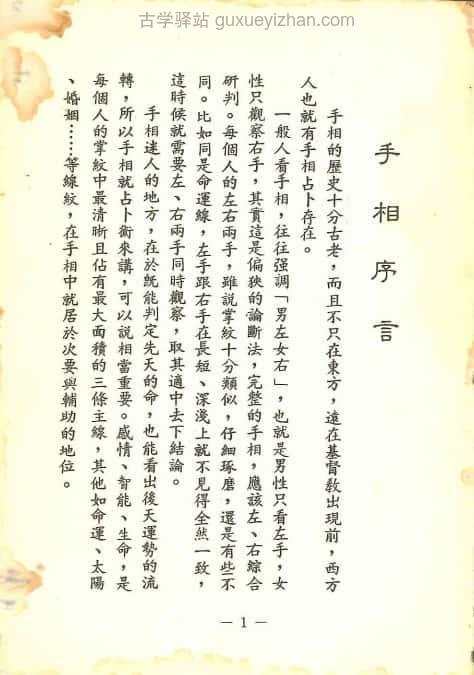 古学驿站 guxueyizhan.com
手相序言
手相的歷史十分古老，而且不只在東方，遠在基督敎出現前，西方
人也就有手相占卜存在。
一般人看手相，往往强調「男左女右」，也就是男性只看左手，女
性只觀察右手，其實這是偏狹的論斷法，完整的手相，應該左、右綜合
研判。每個人的左右兩手，雖說掌紋十分類似，仔細琢磨，還是有些不
同。比如同是命運線，左手跟右手在長短、深淺上就不見得全然一致，
這時候就需要左、右兩手同時觀察，取其適中去下結論。
手相迷人的地方，在於旣能判定先天的命，也能看出後天運勢的流
轉，所以手相就占卜術來講，可以說相當重要。感情、智能、生命，是
每個人的掌紋中最清晰且佔有最大面積的三條主線，其他如命運、太陽
、婚姻……等線紋，在手相中就居於次要與輔助的地位。
— 1 —